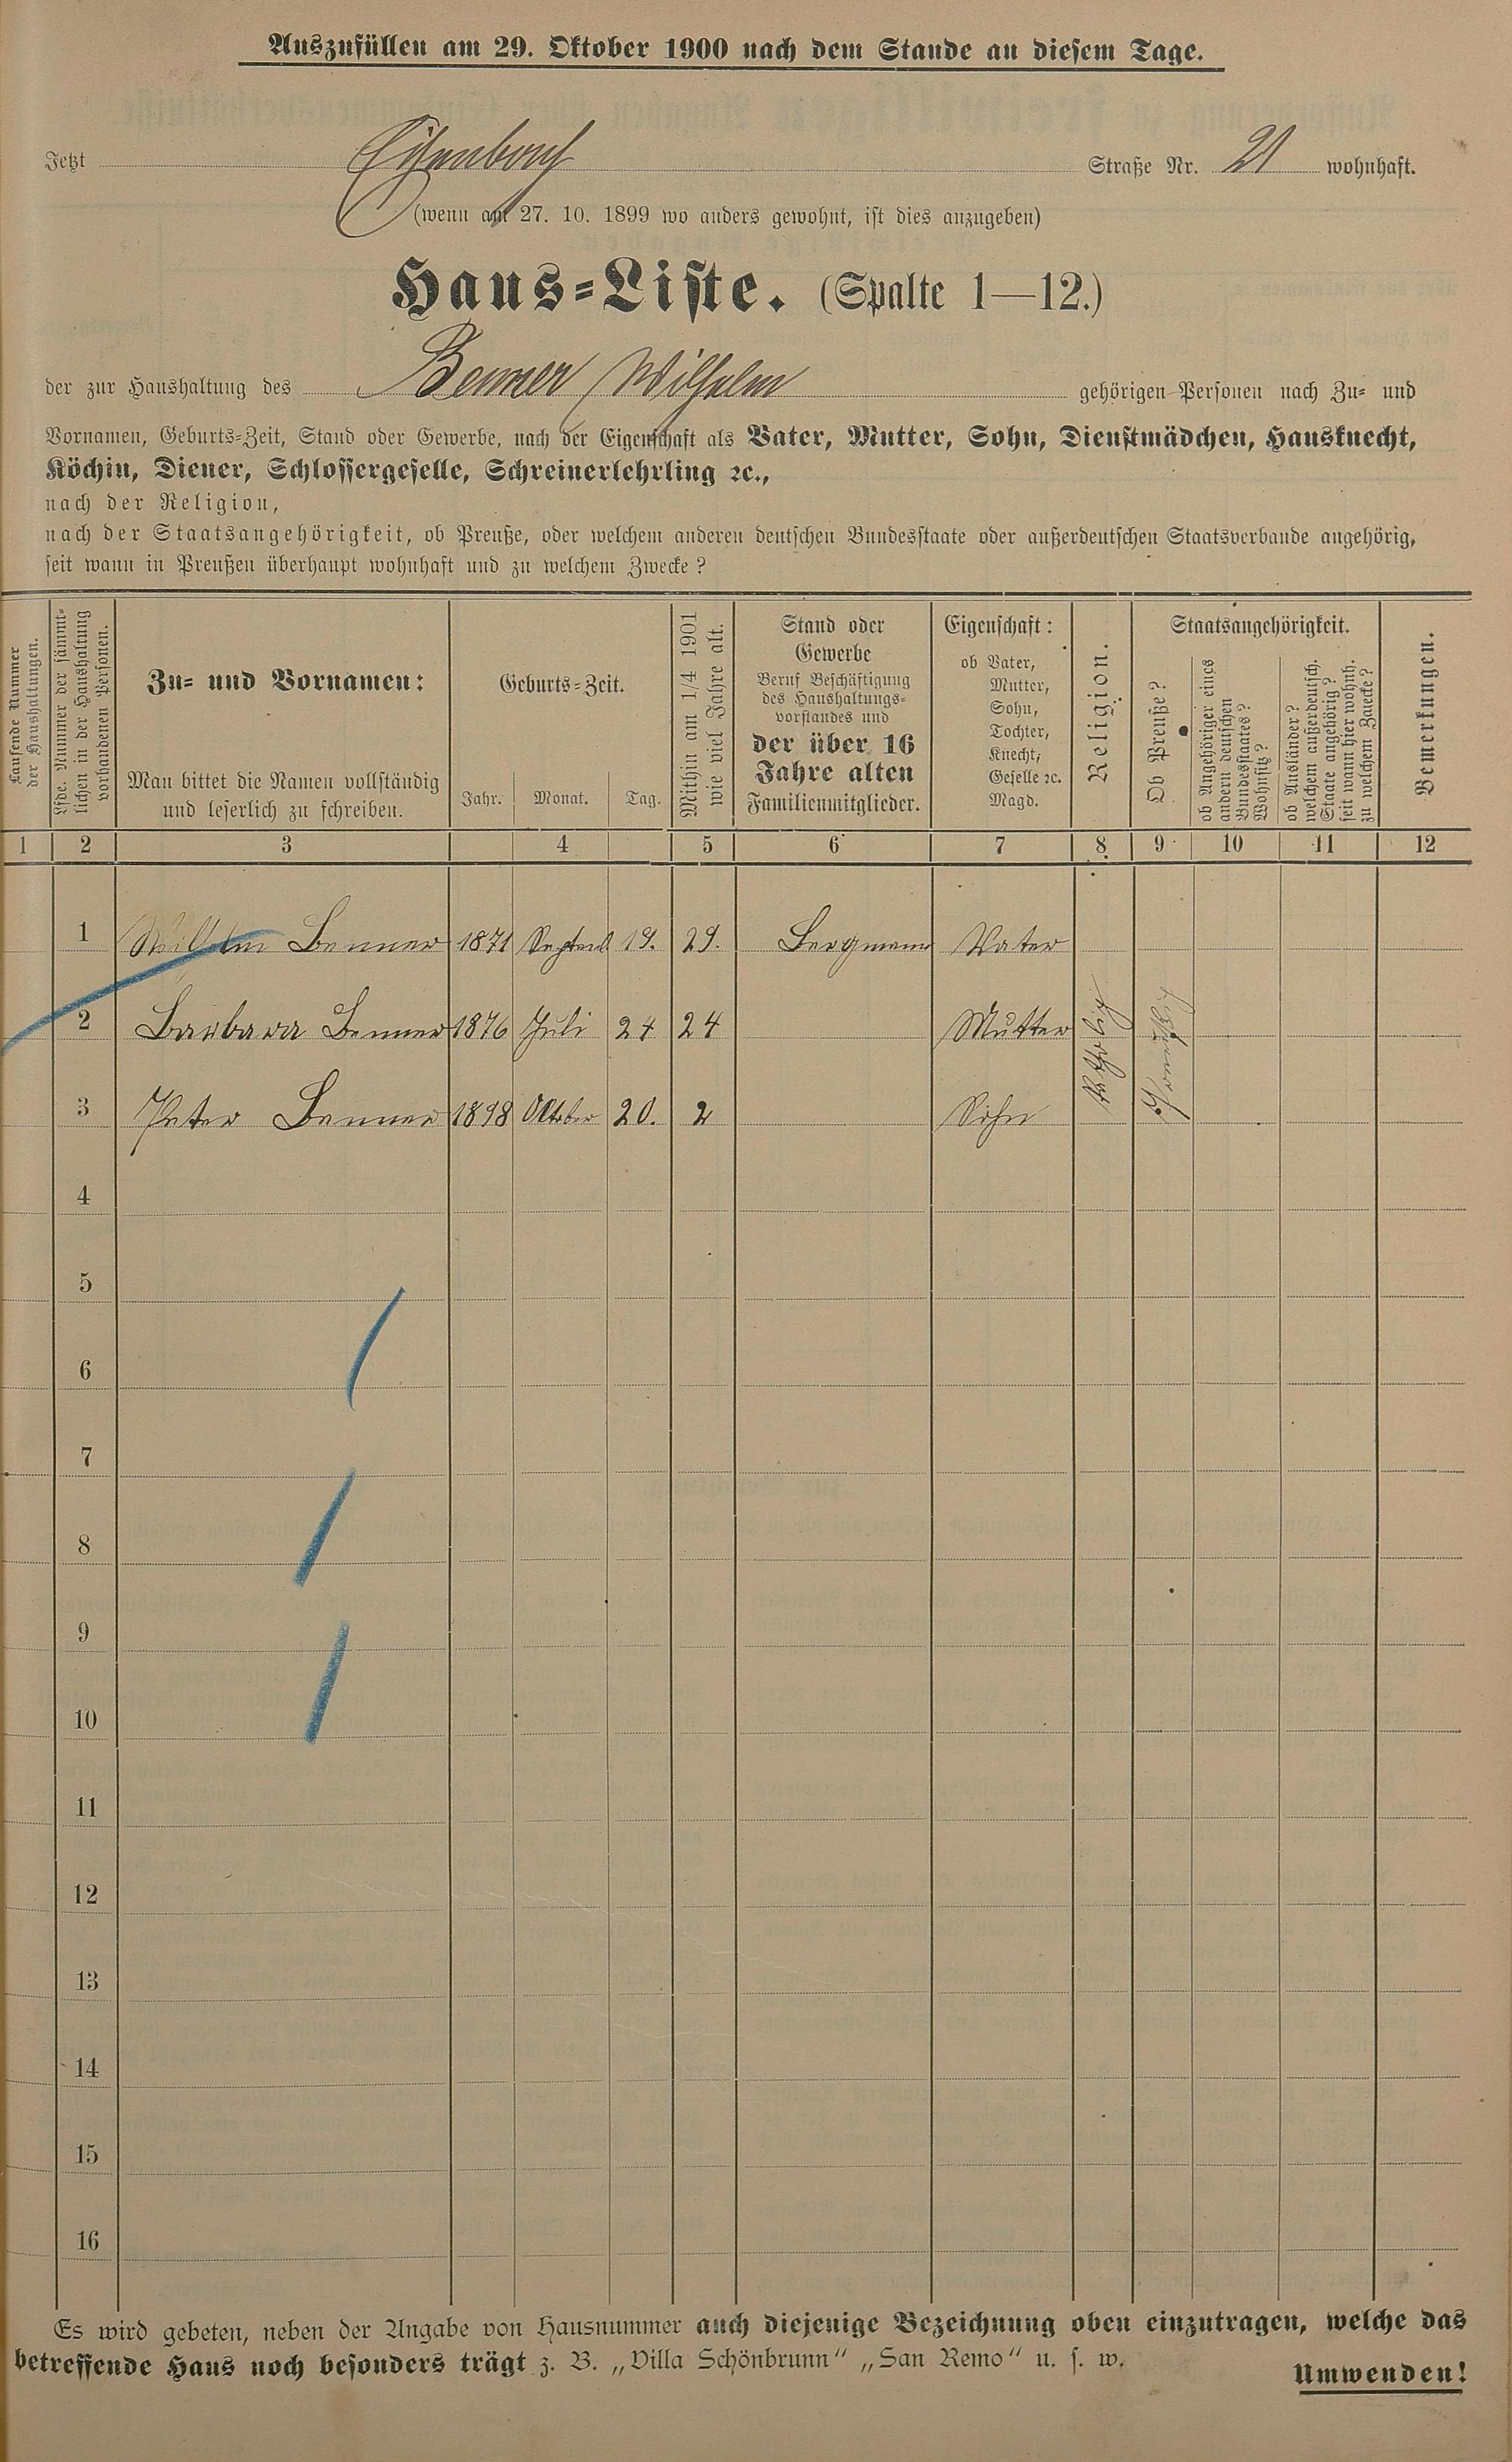 Auszufüllen am 29. Oktober 1900 nach dem Stande an diesem Tage.
Jetzt Straße Nr. 21 wohnhaft.
(wenn am 27. 10. 1899 wo anders gewohnt, ist dies anzugeben)
Haus-Liste. (Spalte 1—12.)
der zur Haushaltung des Benner Wilhelm gehörigen Personen nach Zu- und
Vornamen, Geburts-Zeit, Stand oder Gewerbe, nach der Eigenschaft als Vater, Mutter, Sohn, Dienstmädchen, Hausknecht,
Köchin, Diener, Schlossergeselle, Schreinerlehrling ꝛc.,
nach der Religion,
nach der Staatsangehörigkeit, ob Preuße, oder welchem anderen deutschen Bundesstaate oder außerdeutschen Staatsverbande angehörig,
seit wann in Preußen überhaupt wohnhaft und zu welchem Zwecke?
Laufende Nummer
der Haushaltungen.
Lfde. Nummer der sämmt-
lichen in der Haushaltung
vorhandenen Personen.
Zu- und Vornamen:
Man bittet die Namen vollständig
und leserlich zu schreiben.
Geburts-Zeit.
Jahr. Monat. Tag.
Mithin am 1/4 1901
wie viel Jahre alt.
Stand oder
Gewerbe
Beruf Beschäftigung
des Haushaltungs-
vorstandes und
der über 16
Jahre alten
Familienmitglieder.
Eigenschaft:
ob Vater,
Mutter,
Sohn,
Tochter,
Knecht,
Geselle ꝛc.
Magd.
Religion.
Staatsangehörigkeit.
Ob Preuße?
ob Angehöriger eines
andern deutschen
Bundesstaates?
Wohnsitz?
ob Ausländer?
welchem außerdeutsch.
Staate angehörig?
seit wann hier wohnh.
zu welchem Zwecke?
Bemerkungen.
1 2 3 4 5 6 7 8 9 10 11 12
1 Wilhelm Benner 1871 Septemb 19. 29. Bergmann Vater
2 Barbara Benner 1876 Juli 24 24 Mutter
3 Peter Benner 1898 Oktober 20. 2 Sohn
Katholisch
Preuße
4
5
6
7
8
9
10
11
12
13
14
15
16
Es wird gebeten, neben der Angabe von Hausnummer auch diejenige Bezeichnung oben einzutragen, welche das
betreffende Haus noch besonders trägt z. B. „Villa Schönbrunn" „San Remo" u. s. w.
Umwenden!